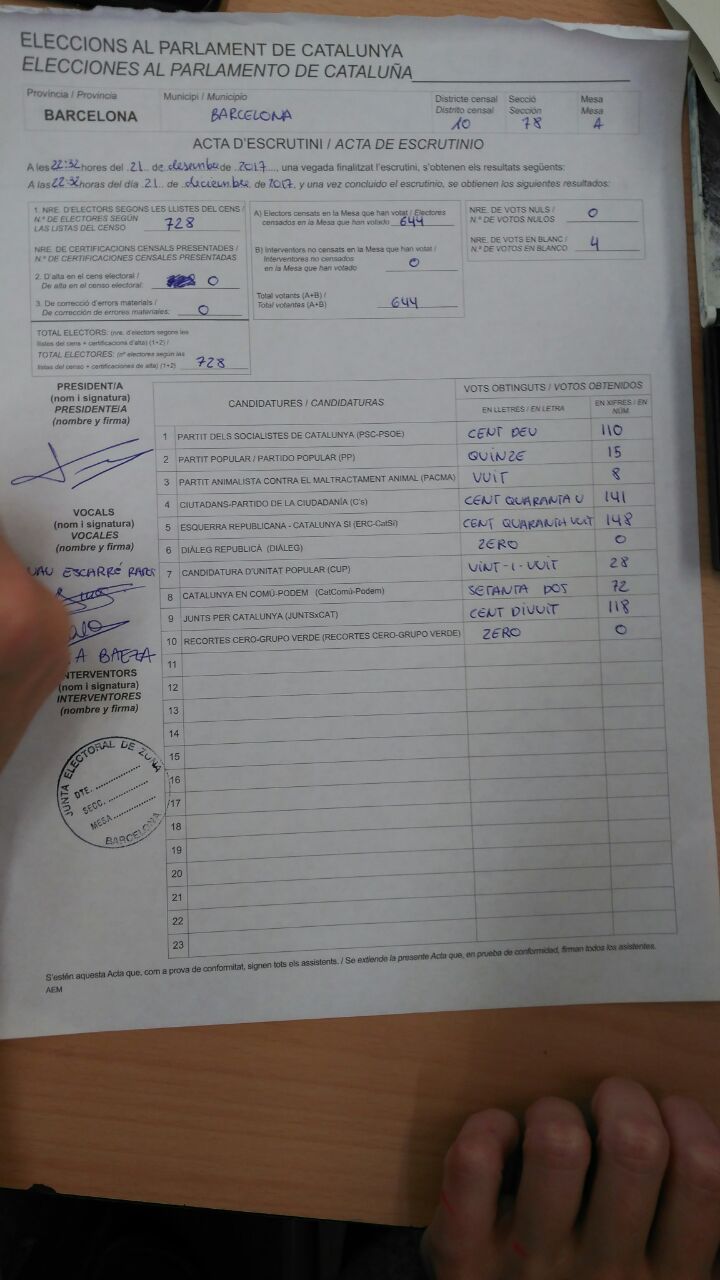 ELECCIONS AL PARLAMENT DE CATALUNYA
ELECCIONES AL PARLAMENTO DE CATALUÑA
Província / Provincia
BARCELONA
Municipi / Municipio
BARCELONA
Districte censal
Distrito censal
10
Secció
Sección
78
Mesa
Mesa
A
ACTA D'ESCRUTINI / ACTA DE ESCRUTINIO
A les 22:32 hores del 21 de desembre de 2017, una vegada finalitzat l'escrutini, s'obtenen els resultats següents:
A las 22:32 horas del día 21 de diciembre de 2017, y una vez concluido el escrutinio, se obtienen los siguientes resultados:
1. NRE. D'ELECTORS SEGONS LES LLISTES DEL CENS /
N.º DE ELECTORES SEGÚN
LAS LISTAS DEL CENSO 728
NRE. DE CERTIFICACIONS CENSALS PRESENTADES /
N.º DE CERTIFICACIONES CENSALES PRESENTADAS
2. D'alta en el cens electoral /
De alta en el censo electoral: 0
3. De correcció d'errors materials /
De corrección de errores materiales: 0
TOTAL ELECTORS: (nre. d'electors segons les
llistes del cens + certificacions d'alta) (1+2) /
TOTAL ELECTORES: (nº electores según las
listas del censo + certificaciones de alta) (1+2) 728
A) Electors censats en la Mesa que han votat / Electores
censados en la Mesa que han votado 644
B) Interventors no censats en la Mesa que han votat /
Interventores no censados
en la Mesa que han votado 0
Total votants (A+B) /
Total votantes (A+B) 644
NRE. DE VOTS NULS /
N.º DE VOTOS NULOS 0
NRE. DE VOTS EN BLANC /
N.º DE VOTOS EN BLANCO 4
PRESIDENT/A
(nom i signatura)
PRESIDENTE/A
(nombre y firma)
VOCALS
(nom i signatura)
VOCALES
(nombre y firma)
ESCARRÉ
A BAEZA
INTERVENTORS
(nom i signatura)
INTERVENTORES
(nombre y firma)
JUNTA ELECTORAL DE ZONA
DTE.
SECC.
MESA
BARCELONA
CANDIDATURES / CANDIDATURAS
VOTS OBTINGUTS / VOTOS OBTENIDOS
EN LLETRES / EN LETRA
EN XIFRES / EN NÚM
1 PARTIT DELS SOCIALISTES DE CATALUNYA (PSC-PSOE) CENT DEU 110
2 PARTIT POPULAR / PARTIDO POPULAR (PP) QUINZE 15
3 PARTIT ANIMALISTA CONTRA EL MALTRACTAMENT ANIMAL (PACMA) VUIT 8
4 CIUTADANS-PARTIDO DE LA CIUDADANÍA (C's) CENT QUARANTA U 141
5 ESQUERRA REPUBLICANA - CATALUNYA SI (ERC-CatSí) CENT QUARANTA VUIT 148
6 DIÀLEG REPUBLICÀ (DIÀLEG) ZERO 0
7 CANDIDATURA D'UNITAT POPULAR (CUP) VINT-I-VUIT 28
8 CATALUNYA EN COMÚ-PODEM (CatComú-Podem) SETANTA DOS 72
9 JUNTS PER CATALUNYA (JUNTSxCAT) CENT DIVUIT 118
10 RECORTES CERO-GRUPO VERDE (RECORTES CERO-GRUPO VERDE) ZERO 0
11
12
13
14
15
16
17
18
19
20
21
22
23
S'estén aquesta Acta que, com a prova de conformitat, signen tots els assistents. / Se extiende la presente Acta que, en prueba de conformidad, firman todos los asistentes.
AEM